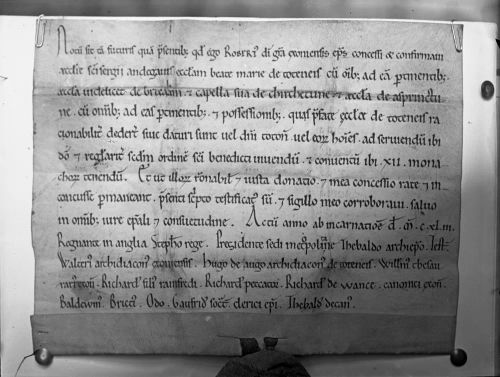 Notū sit tā futuris quā p̄sentib; qđ ego Robert' di gr̄a exoniensis ep̄s concessi & confirmaui
æcclie sc̄i sergii andegauis æcclam beate marie de toteneis cū oīb; ad eā ꝑtinentib;
æcclā indelicet de brixam & capella sua de chirchetune & æcclā de asprinctu
ne . cū omīb; ad eas ꝑtinentib; & possessionib; quas p̄fate æcclæ de toteneis ra
cionabilit̄ dederī siue daturi sunt uel dn̄i toton̄ uel eor̄ hoīes . ad seruiendū ibi
dō & reglarit̄ scdm ordinē sc̄i benedicti uiuendū . & conuentū ibi .xii. mona
chor̄ tenendū . Et ut illor̄ rōnabil' & iusta donatio . & mea concessio rate & in
concusse ꝑmaneant . p̄senti sc̄pto testificat' sū . & sigillo meo corroboraui . saluo
in omīb; iure ep̄ali & consuetudine . Actū anno ab incarnatiōe d̄ . m̄ . c . xl . iii .
Regnante in anglia Steph̄o rege . Presidente sedi metꝑolitine Thebaldo archiep̄o . Test'
Walter' archidiacon' exoniensis . Hugo de augo archidiacon' de toteneis . Willm' chesau
rari' exon̄ . Richard' fili' rainfredi . Richard' peccator . Richard' de wance . canonici exon̄ .
Baldewin' . Bricci' . Odo . Gaufrid' socī . clerici ep̄i . Thebald' decan' .